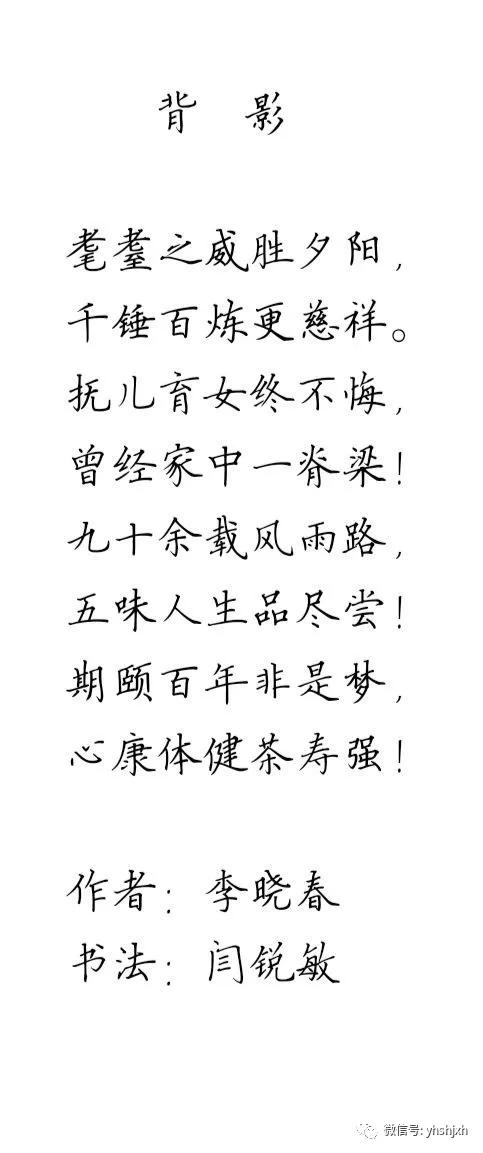 背 影
耄耋之威胜夕阳，
千锤百炼更慈祥。
抚儿育女终不悔，
曾经家中一脊梁！
九十余载风雨路，
五味人生品尽尝！
期颐百年非是梦，
心康体健茶寿强！
作者：李晓春
书法：闫锐敏
微信号: yhshjxh